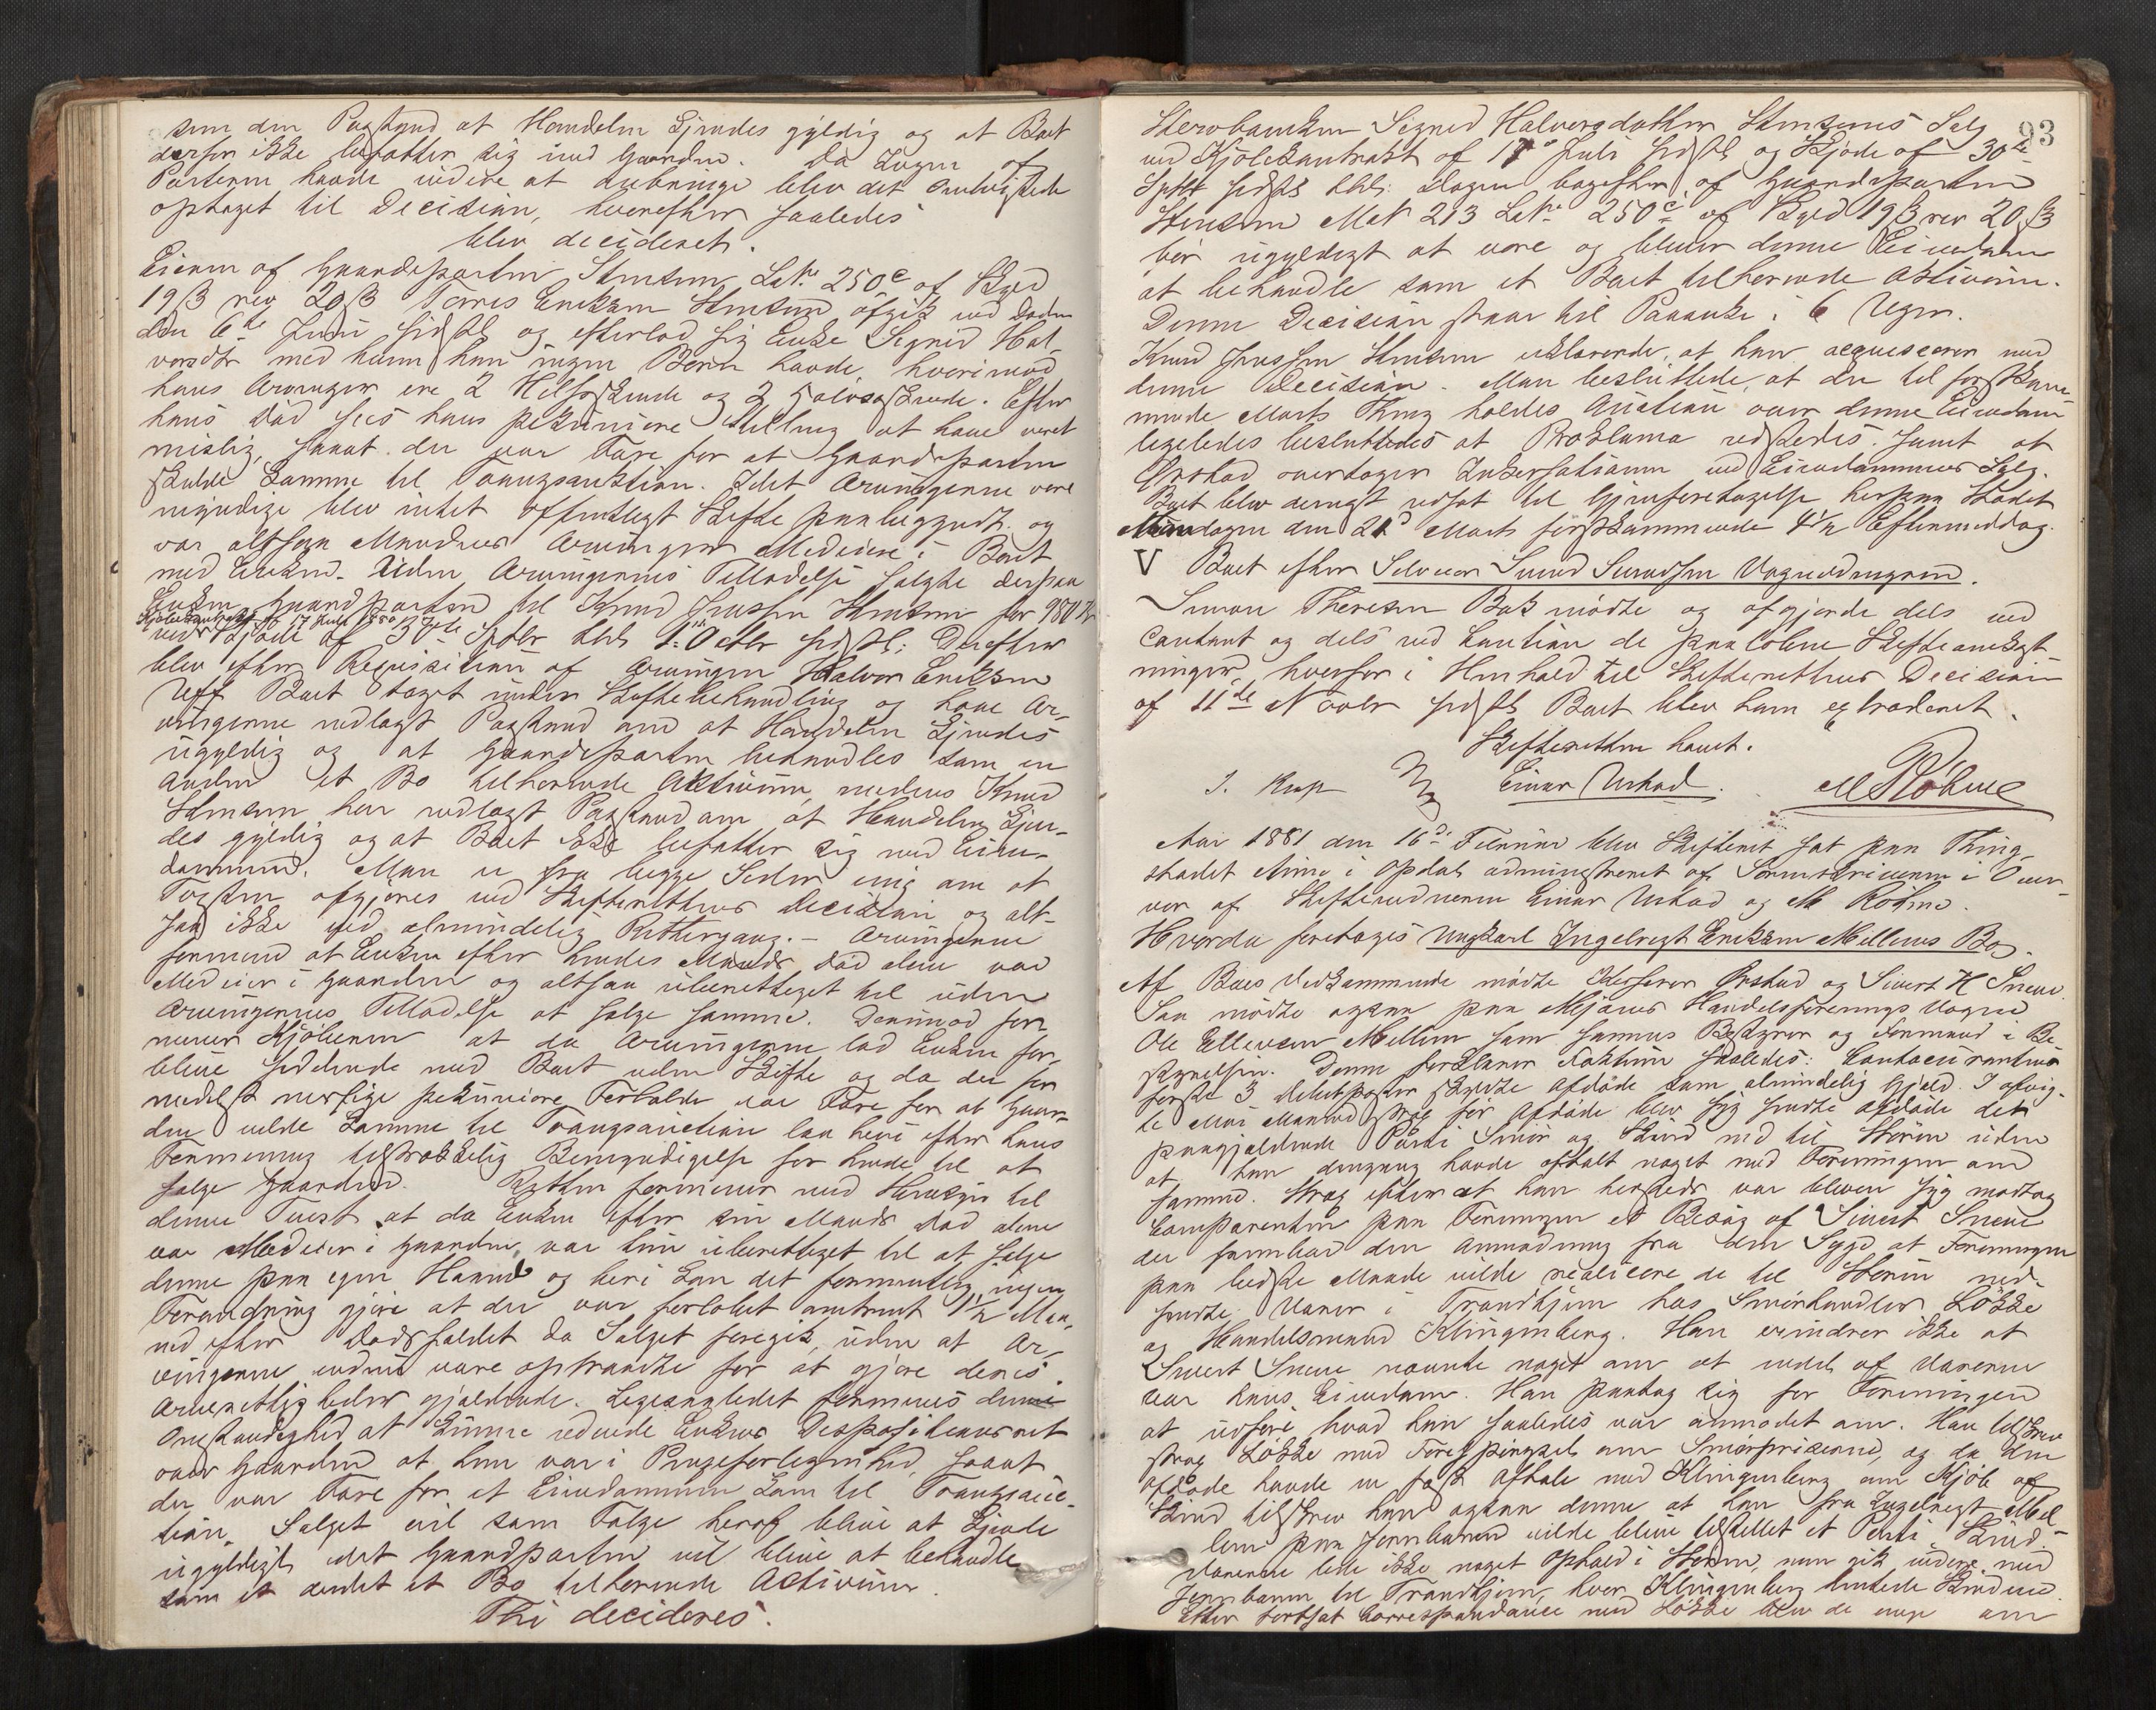 sin den Paastand at Handelen kjendes gyldig og at Boet
derfor ikke befatter sig med Gaarden. Da Ingen af
Parterne havde videre at anbringe blev det omtvistede
optaget til Decision, hvorefter saaledes
blev decideret.
Eieren af Gaardsparten Stensem L.Nr. 250c af Skyld
19 β rev 20 β Tarris Eriksen Stensem afgik ved Døden
den 6te Juni sidstl. og efterlod sig Enke Sigrid Hal-
vorsdtr med hvem han ingen Børn havde, hvorimod
hans Arvinger ere 2 Helsøskende og 2 Halvsøskende. Efter
hans Død sees hans pekuniære Stilling at have været
mislig, saaat der var Fare for at Gaardsparten
skulde komme til Tvangsauktion. Idet Arvingerne vare
myndige blev intet offentligt Skifte paabegyndt og
var altsaa Mandens Arvinger Medeiere i Boet
med Enken. Uden Arvingernes Tilladelse solgte derpaa
Enken Gaardsparten til Knud Jensen Stensem for 980 Kr
Kjøbekontrakt af 17 Juli 1880
ved Skjøde af 30te Septbr thl. 1. Octbr sidstl: Derefter
blev efter Reqvisition af Arvingen Halvor Eriksen
Uff Boet taget under Skiftebehandling og have Ar-
vingerne nedlagt Paastand om at Handelen kjendes
ugyldig og at Gaardsparten behandles som en
anden et Bo tilhørende Aktivum, medens Knud
Stensem har nedlagt Paastand om at Handelen kjen-
des gyldig og at Boet ikke befatter sig med Eien-
dommen. Man er fra begge Sider enig om at
Tvisten afgjøres ved Skifterettens Decision og alt-
saa ikke ved almindelig Rettergang. – Arvingerne
formene at Enken efter hendes Mands Død alene var
Medeier i Gaarden og altsaa uberettiget til uden
Arvingernes Tilladelse at sælge samme. Derimod for-
mener Kjøberen at da Arvingerne lod Enken for-
blive siddende med Boet uden Skifte og da der for-
medelst mislige pekuniære Forholde var Fare for at Gaar-
den vilde komme til Tvangsauction laa heri efter hans
Formening tilstrækkelig Bemyndigelse for hende til at
sælge Gaarden. Retten formener med Hensyn til
denne Tvist at da Enken efter sin Mands Død alene
var Medeier i Gaarden, var hun uberettiget til at sælge
denne paa egen Haand og heri kan det formentlig ingen
Forandring gjøre at der var forløbet omtrent 1 1/2 Maa-
ned efter Dødsfaldet da Salget foregik, uden at Ar-
vingerne endnu vare optraadte for at gjøre deres
Arverettigheder gjældende. Ligesaalidet formenes denne
Omstændighed at kunne udvide Enkens Dispositionsret
over Gaarden at hun var i Pengeforlegenhed, saaat
der var Fare for at Eiendommen kom til Tvangsauc-
tion. Salget vil som Følge heraf blive at kjende
ugyldigt idet Gaardsparten vil blive at behandle
som et andet et Bo tilhørende Activum.
Thi decideres:
93
Stervboenken Sigrid Halvorsdatter Stensems Salg
ved Kjøbekontrakt af 17de Juli sidstl. og Skjøde af 30te
Septbr sidstl. thl. Dagen bagefter, af Gaardsparten
Stensem Mat 213 L.Nr. 250c af Skyld 19 β rev 20 β
bør ugyldigt at være og bliver denne Eiendom
at behandle som et Boet tilhørende Aktivum.
Denne Decision staar til Paaanke i 6 Uger.
Knud Jensen Stensem erklærede, at han acquiescerer med
denne Decision. Man besluttede, at der til førstkom-
mende Marts Thing holdes Auction over denne Eiendom
ligeledes besluttedes at Proklama udstedes. Samt at
Ørstad overtager Inkassationen ved Eiendommens Salg.
Boet blev dernæst udsat til Gjenforetagelse her paa Stedet
Mandagen den 21d Marts førstkommende 4 1/2 Eftermiddag.
V Boet efter Selveier Simen Simensen Vognildengren.
Simon Theresen Bak mødte og afgjorde dels ved
Contant og dels ved Caution de paaløbne Skifteomkost-
ninger, hvorfor i Henhold til Skifterettens Decision
af 11te Novbr sidstl. Boet blev ham extraderet.
Skifteretten hævet.
J. Krup Einar Urstad. M Røhme
Aar 1881 den 16de Februar blev Skifteret sat paa Thing-
stedet Aune i Opdal administreret af Sorenskriveren i Over-
vær af Skiftevidnerne Einar Urstad og M Røhme.
Hvorda foretoges Ungkarl Ingebrigt Eriksen Mellems Bo.
Af Boes Vedkommende mødte Kasserer Ørstad og Sivert H Sneve
Saa mødte ogsaa paa Mjøens Handelsforenings Vegne
Ole Ellevsen Mellem som sammes Bestyrer og Formand i Be-
styrelsen. Denne forklarer Faktum saaledes: Contocourantens
første 3 Debetposter skyldte Afdøde som almindelig Gjæld. I afvig-
te Mai Maaned strax før Afdøde blev syg sendte Afdøde det
paagjældende Parti Smør og Skind ned til Støren uden
at han dengang havde aftalt noget med Foreningen om
samme. Strax efterat han hersteds var bleven syg modtog
Comparenten paa Foreningen et Besøg af Sivert Snæve
der frembar den Anmodning fra den Syge at Foreningen
paa bedste Maade vilde realisere de til Støren ned-
sendte Varer i Trondhjem hos Smørhandler Løkke
og Handelsmand Klingenberg. Han erindrer ikke at
Sivert Sneve nævnte noget om at endel af Varerne
var hans Eiendom. Han paatog sig for Foreningen
at udføre hvad han saaledes var anmodet om. Han tilskrev
strax Løkke med Forespørgsel om Smørpriserne, og da den
Afdøde havde en fast Aftale med Klingenberg om Kjøb af
Skind tilskrev han ogsaa denne at han fra Ingebrigt Mel-
lem paa Jernbanen vilde blive tilstillet et Parti Skind.
Varerne lede ikke noget Ophold i Støren, men gik videre med
Jernbanen til Trondhjem, hvor Klingenberg hentede Skindene.
Efter fortsat Correspondance med Løkke blev de enige om